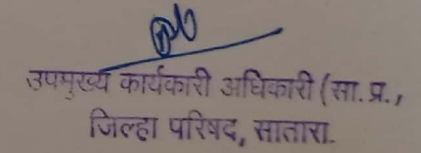 उपमुख्य कार्यकारी अधिकारी (सा. प्र.,
जिल्हा परिषद, सातारा.